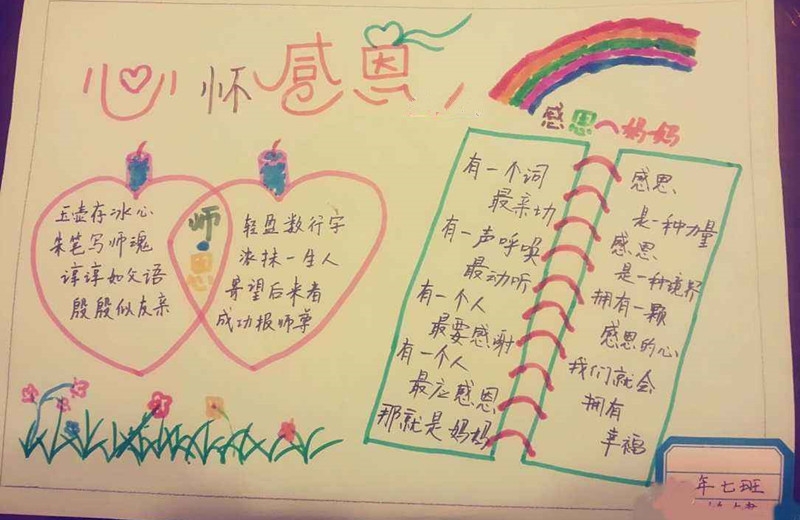 心怀感恩
师恩
玉壶存冰心
朱笔写师魂
谆谆如父语
殷殷似友亲
轻盈数行字
浓抹一生人
寄望后来者
成功报师尊
感恩~妈妈
有一个词
最亲切
有一声呼唤
最动听
有一个人
最要感谢
有一个人
最应感恩
那就是妈妈
感恩
是一种力量
感恩
是一种境界
拥有一颗
感恩的心
我们就会
拥有
幸福
年七班